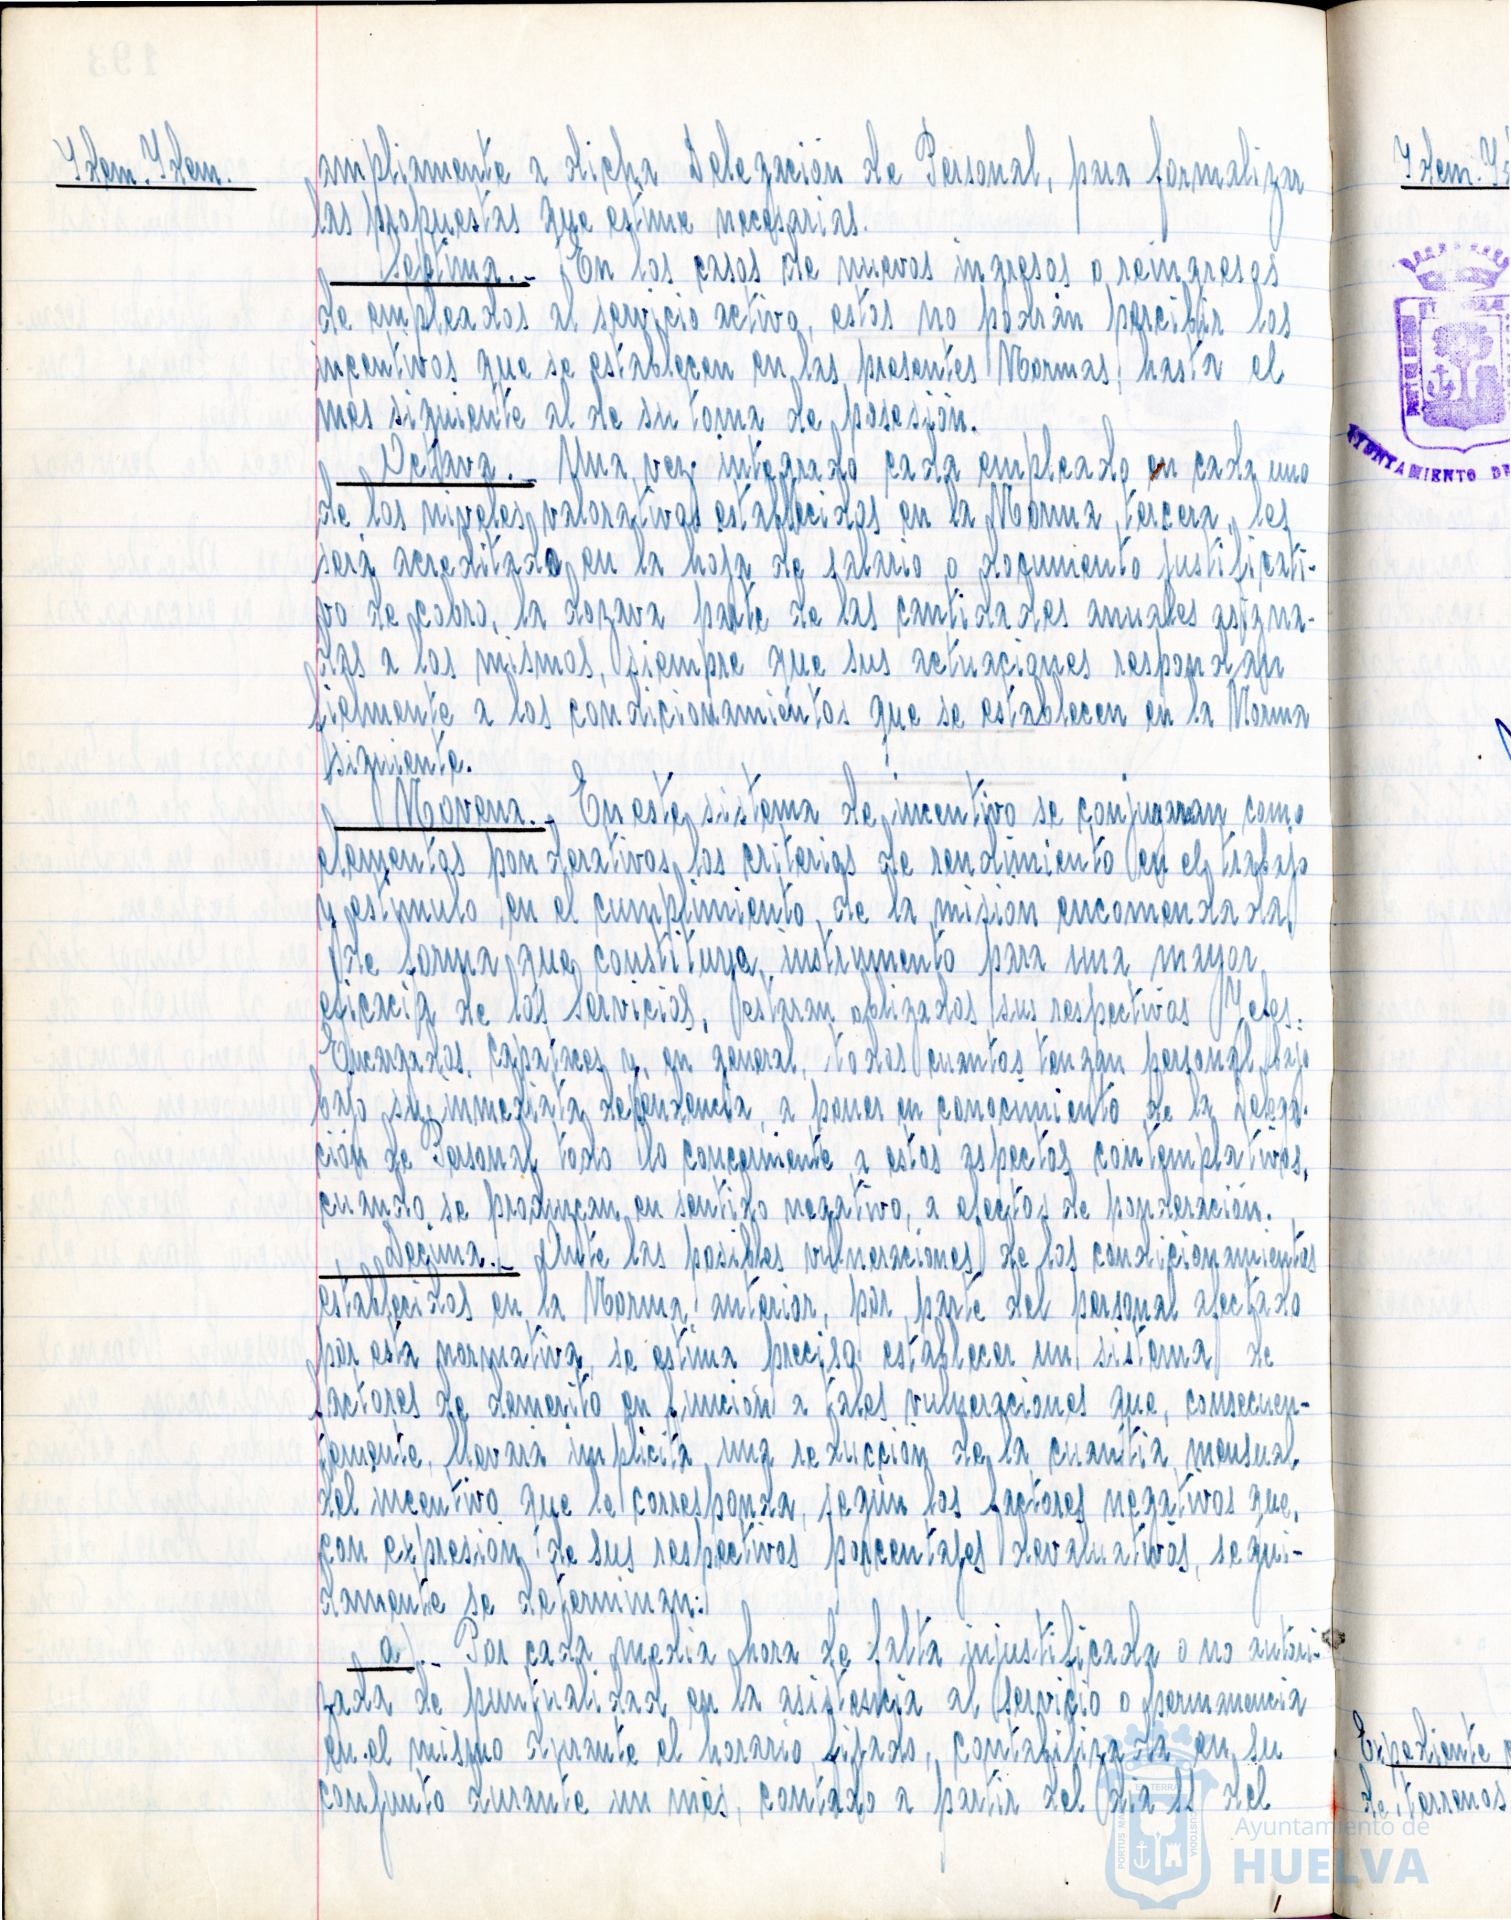 Idem. Idem.
ampliamente a dicha Delegación de Personal, para formalizar
las propuestas que estime necesarias.
Septima.- En los casos de nuevos ingresos o reingresos
de empleados al servicio activo, estos no podrán percibir los
incentivos que se establecen en las presentes Normas, hasta el
mes siguiente al de su toma de posesión.
Octava.- Una vez integrado cada empleado en cada uno
de los niveles valorativos establecidos en la Norma tercera, les
será acreditado en la hoja de salario o documento justificati-
vo de cobro, la dozava parte de las cantidades anuales asigna-
das a los mismos, siempre que sus actuaciones respondan
fielmente a los condicionamientos que se establecen en la Norma
siguiente.
Novena.- En este sistema de incentivo se conjugaran como
elementos ponderativos los criterios de rendimiento en el trabajo
y estimulo en el cumplimiento de la misión encomendada,
de forma que constituya instrumento para una mayor
eficacia de los servicios, estaran obligados sus respectivos Jefes:
Encargados, capataces y, en general, todos cuantos tengan personal bajo
bajo su inmediata dependencia, a poner en conocimiento de la Delega-
ción de Personal todo lo concerniente a estos aspectos contemplativos,
cuando se produzcan en sentido negativo, a efectos de ponderación.
Decima.- Ante las posibles vulneraciones de los condicionamientos
establecidos en la Norma anterior, por parte del personal afectado
por esta normativa, se estima preciso establecer un sistema de
factores de demerito en función a tales vulneraciones que, consecuen-
temente, llevará implicita una reducción de la cuantia mensual
del incentivo que le corresponda, según los factores negativos que,
con expresión de sus respectivos porcentajes devaluativos, segui-
damente se determinan:
a).- Por cada media hora de falta injustificada o no autori-
zada de puntualidad en la asistencia al servicio o permanencia
en el mismo durante el horario fijado, contabilizada en su
conjunto durante un mes, contado a partir del dia del
Idem.
AYUNTAMIENTO DE
Expediente
de terrenos
PORTUS MA
TERRA
CUSTODIA
Ayuntamiento de
HUELVA